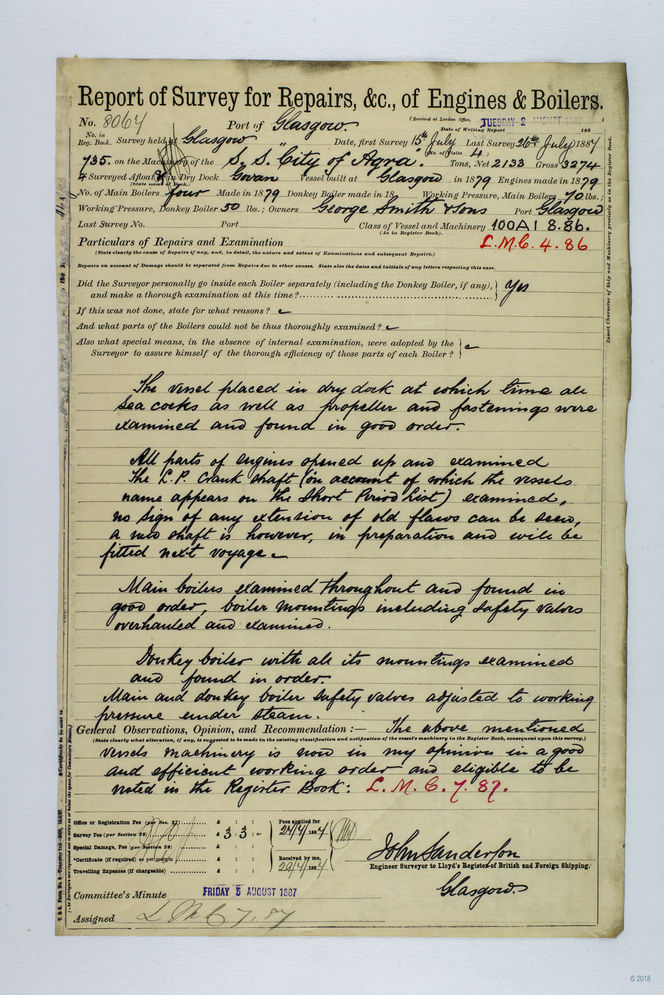 Report of Survey for Repairs, &c., of Engines & Boilers.
(Received at London Office, TUESDAY 2 AUGUST 1887 )
No. 8064 Port of Glasgow. Date of Writing Report 188
No. in Reg. Book. Survey held at Glasgow Date, first Survey 15th July Last Survey 26th July 1887
735. on the Machinery of the S. S. "City of Agra." Tons, Net 2133 Gross 3274
Surveyed Afloat or in Dry Dock Govan Vessel built at Glasgow in 1879 Engines made in 1879
(State name of Dock.)
No. of Main Boilers four Made in 1879 Donkey Boiler made in 18 Working Pressure, Main Boiler 70 lbs.;
Working Pressure, Donkey Boiler 50 lbs.; Owners George Smith & Sons Port Glasgow
Last Survey No. Port Class of Vessel and Machinery 100A1 8.86.
(As in Register Book).
Particulars of Repairs and Examination L.M.C. 4. 86
(State clearly the cause of Repairs if any, and, in detail, the nature and extent of Examinations and subsequent Repairs.)
Repairs on account of Damage should be separated from Repairs due to other causes. State also the dates and initials of any letters respecting this case.
Did the Surveyor personally go inside each Boiler separately (including the Donkey Boiler, if any), and make a thorough examination at this time? Yes
If this was not done, state for what reasons?
And what parts of the Boilers could not be thus thoroughly examined?
Also what special means, in the absence of internal examination, were adopted by the
Surveyor to assure himself of the thorough efficiency of those parts of each Boiler?
The vessel placed in dry dock at which time all
sea cocks as well as propeller and fastenings were
examined and found in good order.
All parts of engines opened up and examined
The L.P. Crank shaft (on account of which the vessels
name appears on the Short Period List) examined,
no sign of any extension of old flaws can be seen,
a new shaft is however, in preparation and will be
fitted next voyage
Main boilers examined throughout and found in
good order, boiler mountings including safety valves
overhauled and examined.
Donkey boiler with all its mountings examined
and found in order.
Main and donkey boiler safety valves adjusted to working
pressure under steam.
General Observations, Opinion, and Recommendation:— The above mentioned
(State clearly what alteration, if any, is suggested to be made in the existing classification and notification of the vessel's machinery in the Register Book, consequent upon this survey.)
vessels machinery is now in my opinion in a good
and efficient working order and eligible to be
noted in the Register Book: L. M. C. 7. 87.
Office or Registration Fee (per Sec. 27) £ : :
Survey Fee (per Section 28) £ 3 : 3 : -
Special Damage, Fee (per Section 28) £ : :
*Certificate (if required) as per margin £ : :
Travelling Expenses (if chargeable) £ : :
Fees applied for
Received by me,
John Sanderson
Engineer Surveyor to Lloyd's Register of British and Foreign Shipping.
Glasgow
Committee's Minute FRIDAY 5 AUGUST 1887
Assigned L M C 7. 87
Insert Character of Ship and Machinery precisely as in the Register Book.
© 2018